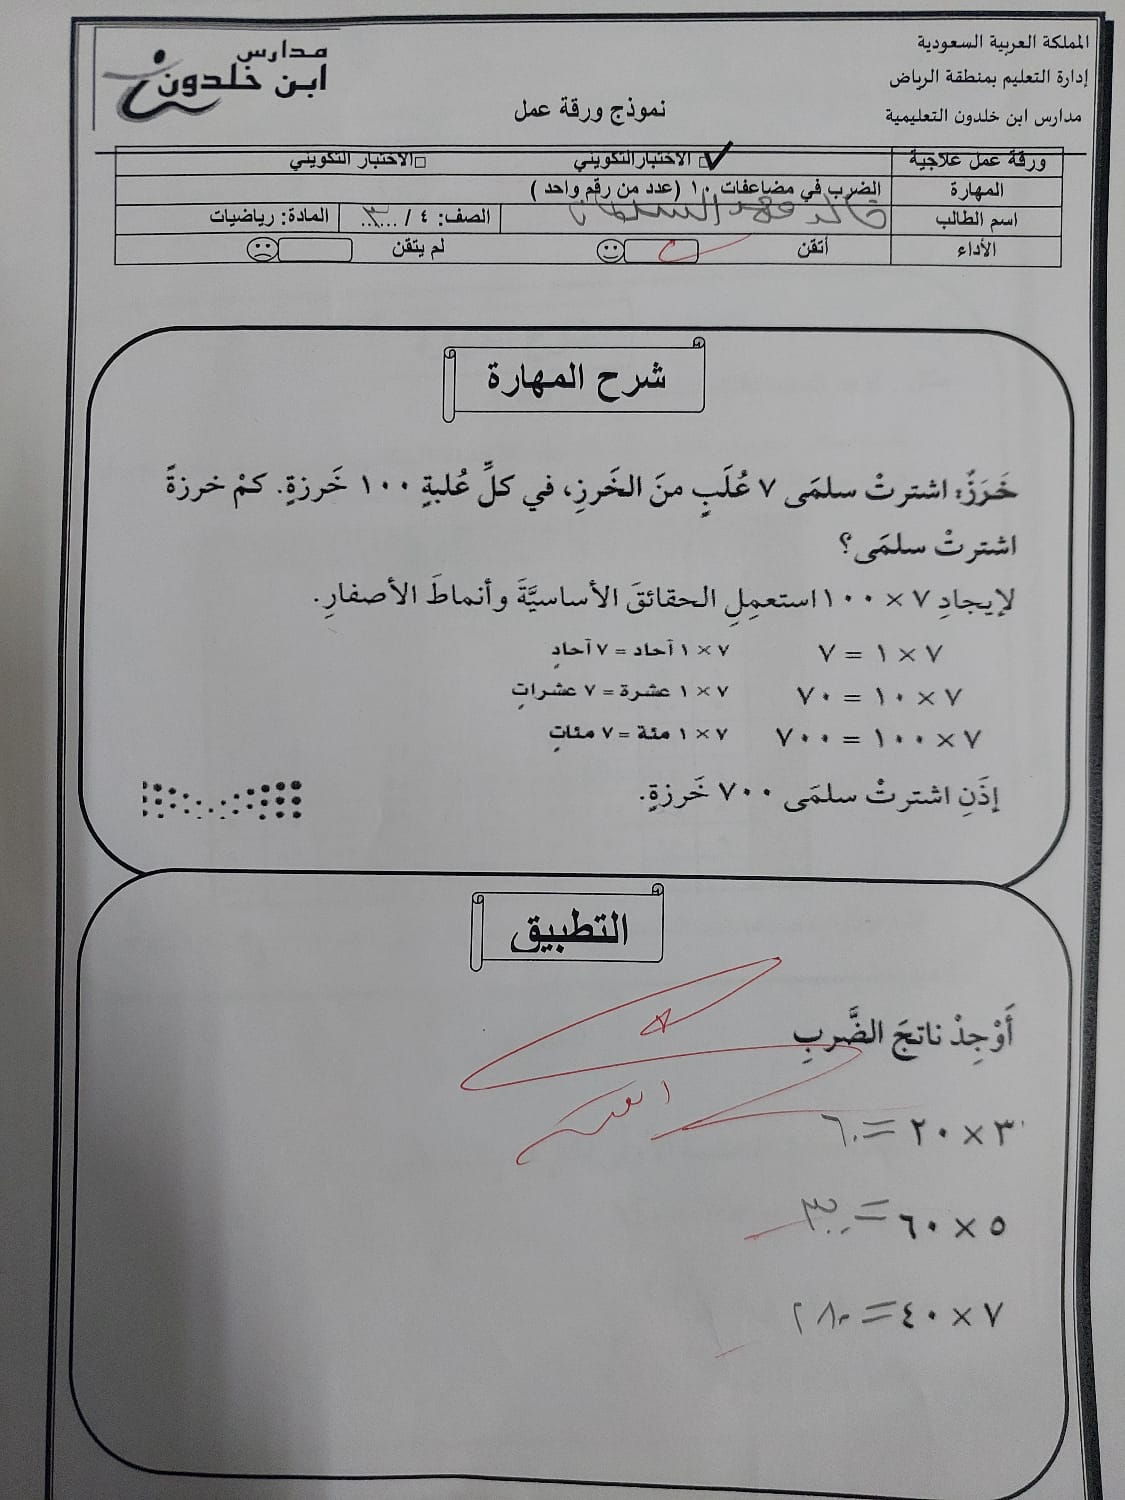 المملكة العربية السعودية
إدارة التعليم بمنطقة الرياض
مدارس ابن خلدون التعليمية
مدارس
ابن خلدون
نموذج ورقة عمل
ورقة عمل علاجية الاختبار التكويني الاختبار التكويني
المهارة الضرب في مضاعفات ١٠ (عدد من رقم واحد )
اسم الطالب الصف: ٤ / ٣ المادة: رياضيات
الأداء أتقن لم يتقن
شرح المهارة
خَرَزٌ: اشترتْ سلمَى ٧ عُلَبٍ منَ الخَرزِ، في كلِّ عُلبةٍ ١٠٠ خَرزةٍ. كمْ خرزةً
اشترتْ سلمَى؟
لإيجادِ ٧ × ١٠٠ استعمِلِ الحقائقَ الأساسيَّةَ وأنماطَ الأصفارِ.
٧ × ١ = ٧ ٧ × ١ آحاد = ٧ آحادٍ
٧ × ١٠ = ٧٠ ٧ × ١ عشرة = ٧ عشراتٍ
٧ × ١٠٠ = ٧٠٠ ٧ × ١ مئة = ٧ مئاتٍ
إذَنِ اشترتْ سلمَى ٧٠٠ خَرزةٍ.
التطبيق
أَوْجِدْ ناتجَ الضَّربِ
٣ × ٢٠ = ٦٠
٥ × ٦٠ = ٣٠٠
٧ × ٤٠ = ٢٨٠